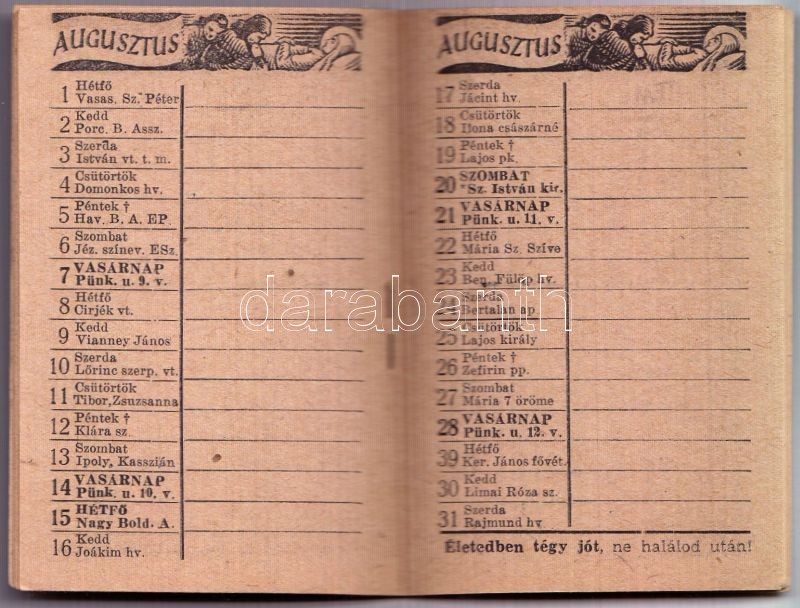 AUGUSZTUS
1 Hétfő
Vasas. Sz. Péter
2 Kedd
Porc. B. Assz.
3 Szerda
István vt. t. m.
4 Csütörtök
Domonkos hv.
5 Péntek †
Hav. B. A. EP.
6 Szombat
Jéz. színev. ESz.
7 VASÁRNAP
Pünk. u. 9. v.
8 Hétfő
Cirjék vt.
9 Kedd
Vianney János
10 Szerda
Lőrinc szerp. vt.
11 Csütörtök
Tibor, Zsuzsanna
12 Péntek †
Klára sz.
13 Szombat
Ipoly, Kasszián
14 VASÁRNAP
Pünk. u. 10. v.
15 HÉTFŐ
Nagy Bold. A.
16 Kedd
Joákim hv.
AUGUSZTUS
17 Szerda
Jácint hv.
18 Csütörtök
Ilona császárné
19 Péntek †
Lajos pk.
20 SZOMBAT
Sz. István kir.
21 VASÁRNAP
Pünk. u. 11. v.
22 Hétfő
Mária Sz. Szíve
23 Kedd
Ben. Fülöp hv.
24 Szerda
Bertalan ap
25 Csütörtök
Lajos király
26 Péntek †
Zefirin pp.
27 Szombat
Mária 7 öröme
28 VASÁRNAP
Pünk. u. 12. v.
39 Hétfő
Ker. János fővét.
30 Kedd
Limai Róza sz.
31 Szerda
Rajmund hv
Életedben tégy jót, ne halálod után!
darabanth